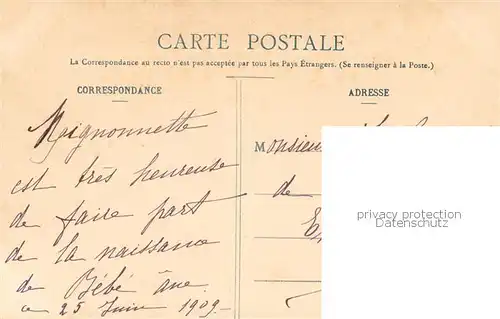 CARTE POSTALE
La Correspondance au recto n'est pas acceptée par tous les Pays Étrangers. (Se renseigner à la Poste.)
CORRESPONDANCE
ADRESSE
Mignonnette
est très heureuse
de faire part
de la naissance
de Bébé âne.
ce 25 Juin 1909-
Monsieur
de
privacy protection
Datenschutz